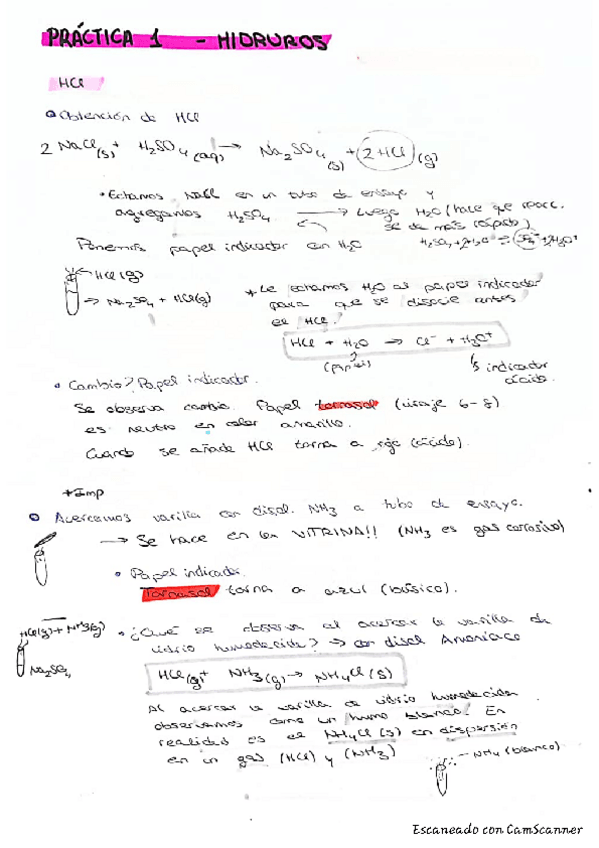 PRÁCTICA 1 - HIDRUROS
HCl
Obtención de HCl
2 NaCl(s) + H₂SO₄(aq) → Na₂SO₄(s) + 2HCl(g)
• Echamos NaCl en un tubo de ensayo y
agregamos H₂SO₄ → Luego H₂O (hace que reacc.
se dé más rápido).
Ponemos papel indicador con H₂O
HCl(g)
→ Na₂SO₄ + HCl(g)
* Le echamos H₂O al papel indicador
para que se disocie antes
el HCl.
HCl + H₂O → Cl⁻ + H₃O⁺
(papel)
indicador
ácido.
• Cambio? Papel indicador.
Se observa cambio. Papel tornasol (viraje 6-8)
es neutro en color amarillo.
Cuando se añade HCl torna a rojo (ácido).
* Imp
Acercamos varilla con disol. NH₃ a tubo de ensayo.
→ Se hace en la VITRINA!! (NH₃ es gas corrosivo)
• Papel indicador.
Tornasol torna a azul (básico).
HCl(g) + NH₃(g)
Na₂SO₄
• ¿Qué se observa al acercar la varilla de
vidrio humedecida? → con disol Amoniaco
HCl(g) + NH₃(g) → NH₄Cl(s)
Al acercar la varilla de vidrio humedecida
observamos como un humo blanco. En
realidad es el NH₄Cl(s) en dispersión
en un gas (HCl) y (NH₃)
NH₄ (blanco)
Escaneado con CamScanner